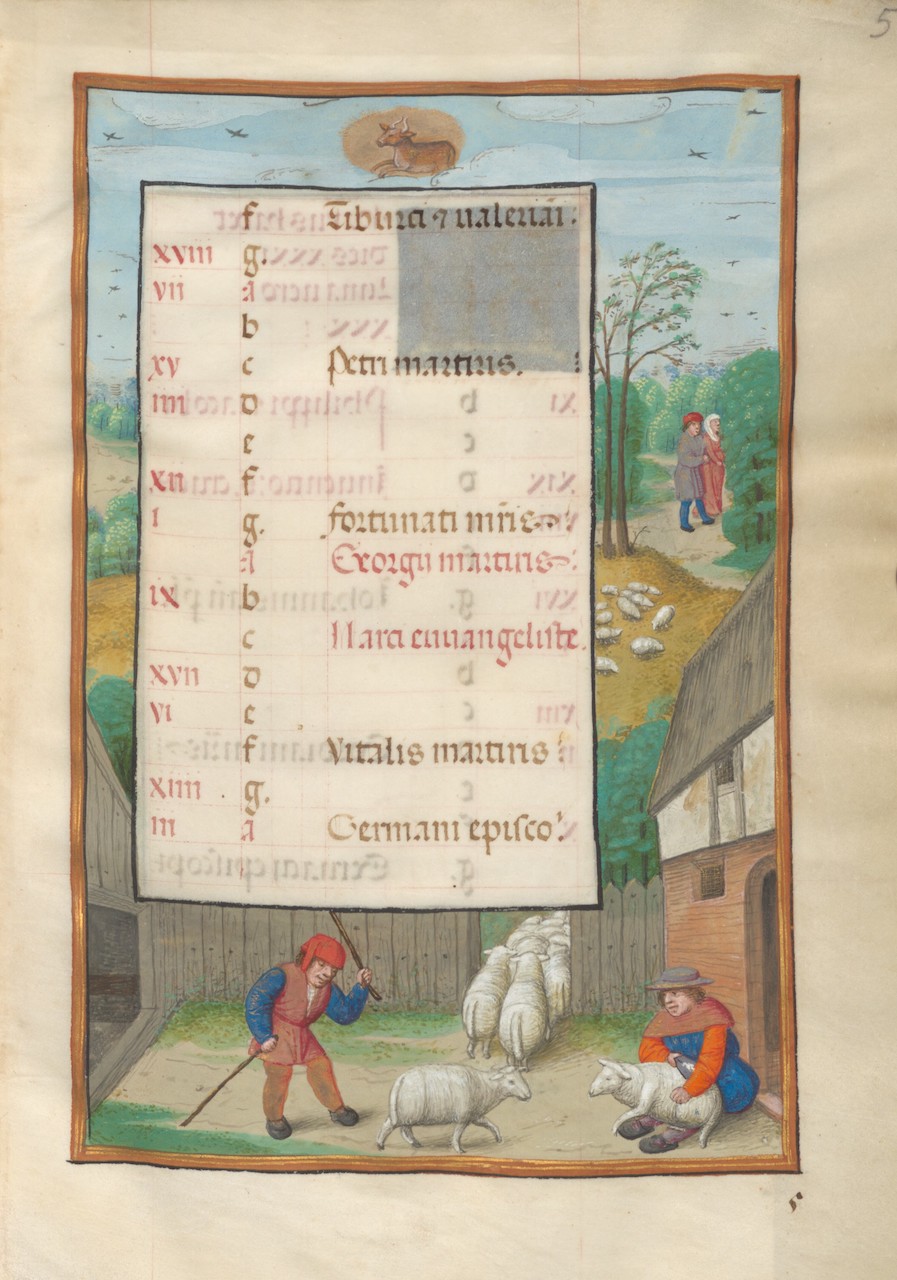 5
f Tiburci ⁊ ualeriai.
xviii g.
vii a
b
xv c Petri martiris.
iiii d
e
xii f
i g. fortunati mr̄is
a Georgii martiris
ix b
c Marci euuangeliste.
xvii d
vi e
f Vitalis martiris
xiiii g.
iii a Germani episco
5